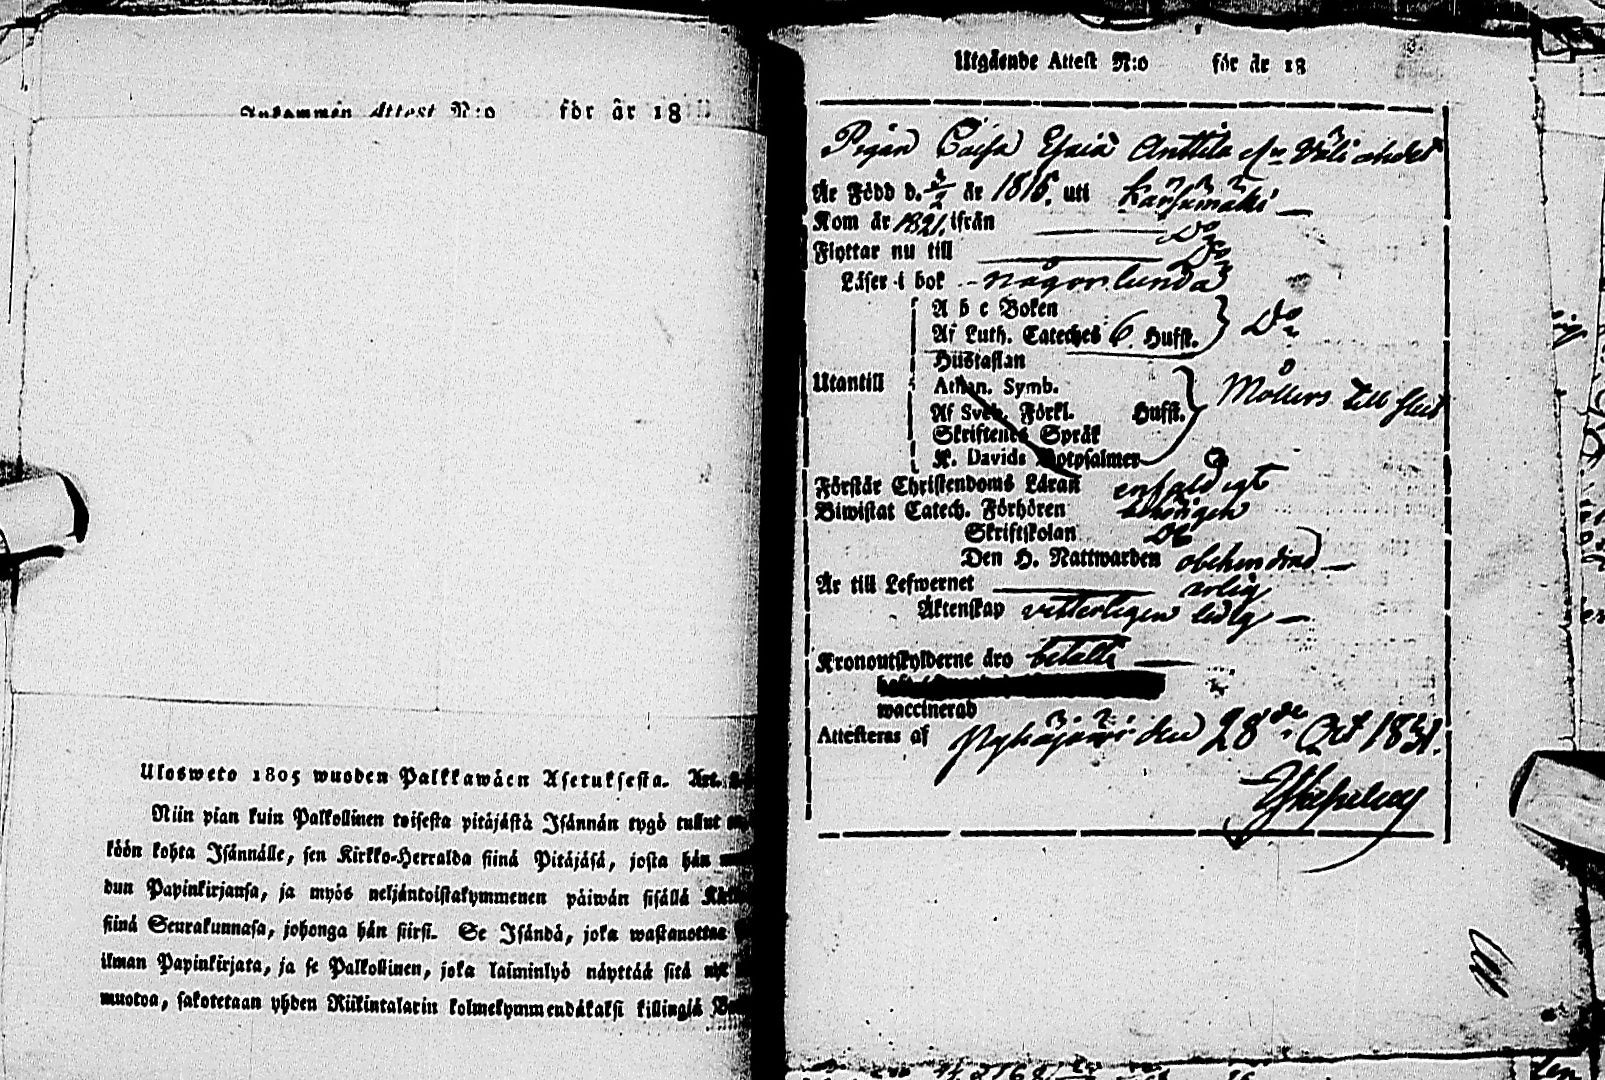 Inkommen Attest N:o för år 18
Ulosweto 1805 wuoden Palkkawäen Asetuksesta. Art.
Niin pian kuin Palkollinen toisesta pitäjästä Isännän tygö tullut
köön kohta Isännälle, sen Kirkko-Herralda siinä Pitäjäsä, josta hän
dun Papinkirjansa, ja myös neljäntoistakymmenen päiwän sisällä
siinä Seurakunnasa, johonga hän siirsi. Se Isändä, joka wastanottaa
ilman Papinkirjata, ja se Palkollinen, joka laiminlyö näyttää sitä nyt
muotoa, sakotetaan yhden Riikintalarin kolmekymmendäkaksi killingiä
Utgående Attest N:o för år 18
Pigan Caisa Esaiæ Anttila
Är Född d. år 1816. uti Kärsämäki
Kom år 1821. ifrån Do
Flyttar nu till Do
Läser i bok någorlunda
A b c Boken
Af Luth. Cateches 6 Hufst. Do
Hustaflan
Utantill Athan. Symb.
Af Sveb. Förkl. Hufst. Möllers till slut
Skriftenes Språk
K. Davids Botpsalmer
Förstår Christendoms Läran enfaldigt
Biwistat Catech. Förhören behörigen
Skriftskolan Do
Den H. Nattwarden obehindrad
Är till Lefwernet ärlig
Äktenskap vitterligen ledig
Kronoutskylderne äro betalte
waccinerad
Attesteras af Pyhäjärvi den 28de Oct 1831.